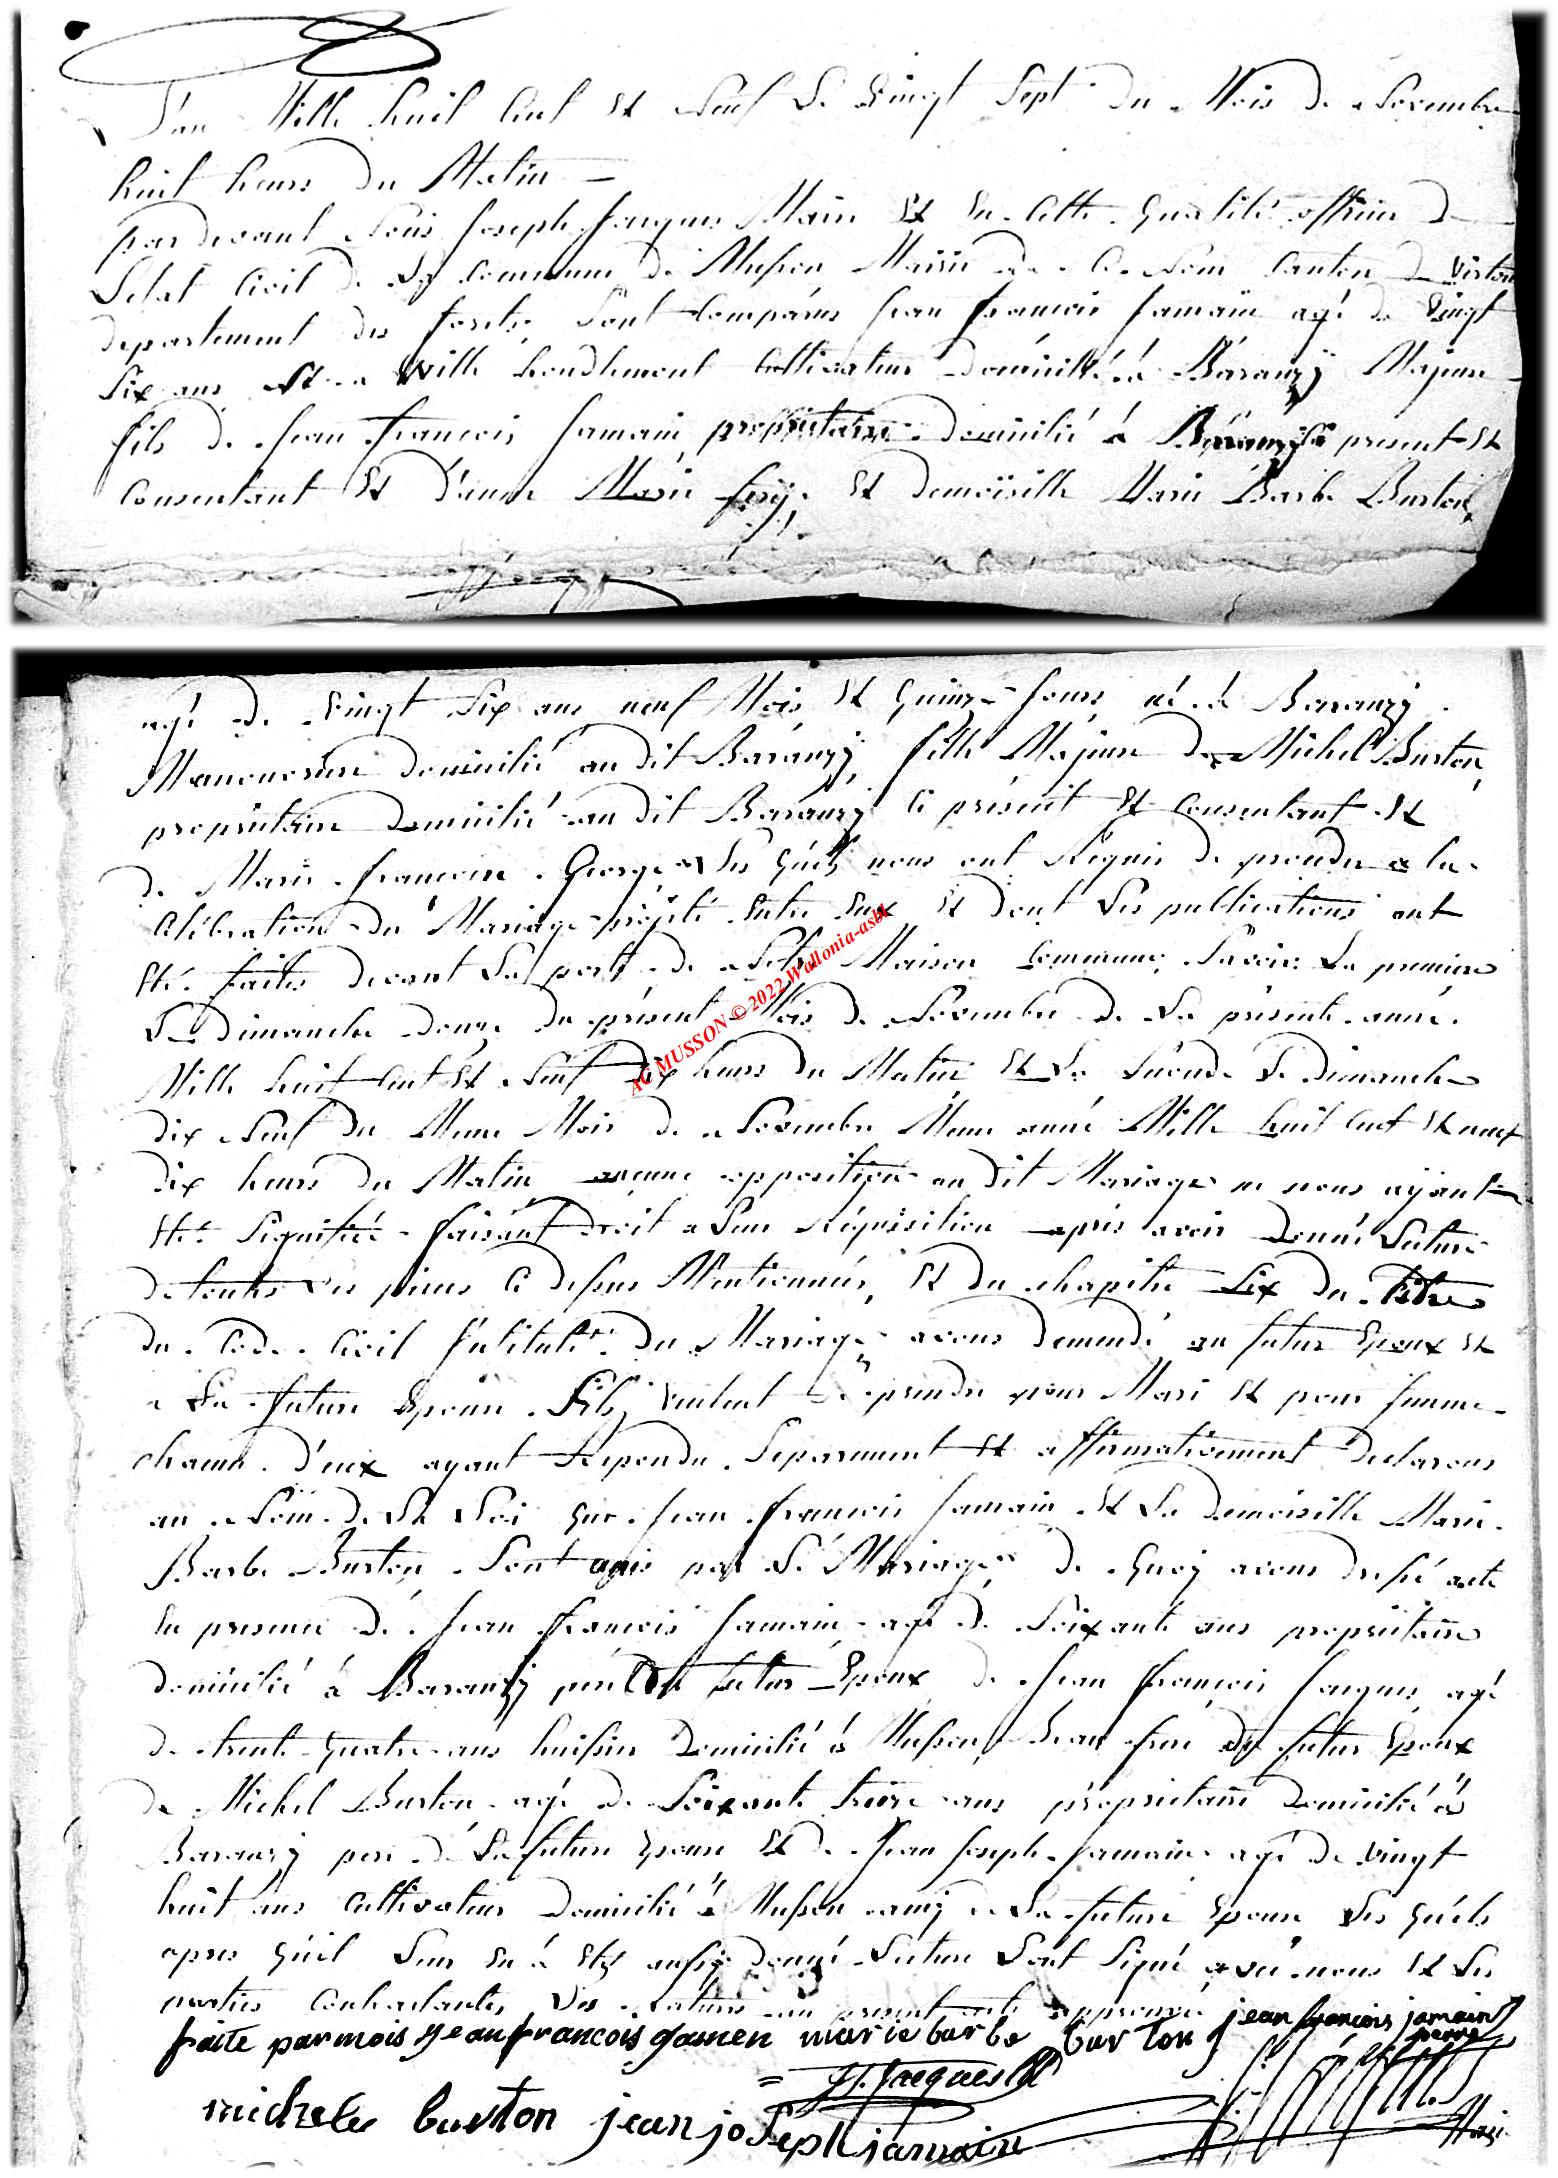 L'an Mille huit Cent Et Neuf Le Vingt Sept du Mois de Novembre
huit heures du Matin
par devant Nous Joseph Jacques Maire Et En Cette qualité officier De
L'etat Civil de La Commune de Musson Mairie de Ce Nom Canton de virton
departement des forets Sont Comparus jean francois jamain agé de Vingt
Six ans Né a Ville houdlemont Cultivateur domicilié à Baranzÿ Majeur
fils de Jean francois Jamain propriétaire domicilié à Baranzÿ present Et
Consentant Et d'anne Marie Et demoiselle Marie Barbe Burton
agé de Vingt Six ans neuf Mois Et quinze Jours né à Baranzÿ
Manouvriere domicilié au dit Baranzÿ fille Majeure de Michel Burton
propriétaire Domicilié au dit Baranzÿ Ci présent Et Consentant Et
de Marie francoise George Les quels nous ont Requis de procedér a la
Célébration du Mariage projété Entre Eux Et dont Les publications ont
Eté faites devant La porte de Notre Maison Commune, Savoir La premiere
Le Dimanche douze du présent Mois de Novembre de La présente année
Mille huit Cent Et Neuf Dix heures du Matin Et La Seconde Le Dimanche
dix Neuf du Meme Mois de Novembre Meme année Mille huit Cent Et neuf
dix heures du Matin aucune opposition au dit Mariage ne nous aÿant
Eté Signifiée faisant Droit a Leur Réquisition apris avoir Donné Lecture
de toutes Les pieces Ci dessus Mentionnées, Et du chapitre Six du Titre
du Code Civil Intitulé du Mariage avons demandé au futur Epoux Et
a La future Epouse S'ils veulent Se prendre pour Mari Et pour femme
chacun d'eux ayant Répondu Separement Et affirmativement Declarons
au Nom de La Loi que Jean francois Jamain Et La demoiselle Marie
Barbe Burton Sont unis par Le Mariage de quoÿ avons dressé acte
En presence dé Jean francois Jamain agé de Soixante ans propriétaire
domicilié à Baranzÿ pere Du futur Epoux de Jean francois Jacques agé
de trente quatre ans huissier Domicilié à Musson Beau frere du futur Epoux
de Michel Burton agé de Soixante ans propriétaire Domicilié à
Baranzÿ pere dé La future Epouse Et de Jean Joseph Jamain agé de vingt
huit ans Cultivateur Domicilié à Musson amÿ de La future Epouse Les quels
apres qu'il Leur En à Eté aussÿ donné Lecture Sont Signé avec nous Et Les
parties Contractantes Les ratures au present acte approuvé jean francois jamain
faite par mois jean francois jamen marie barbe burton perre
J f Jacques
michele burton jean joseph jamain Maire
AC MUSSON © 2022 Wallonia-asbl